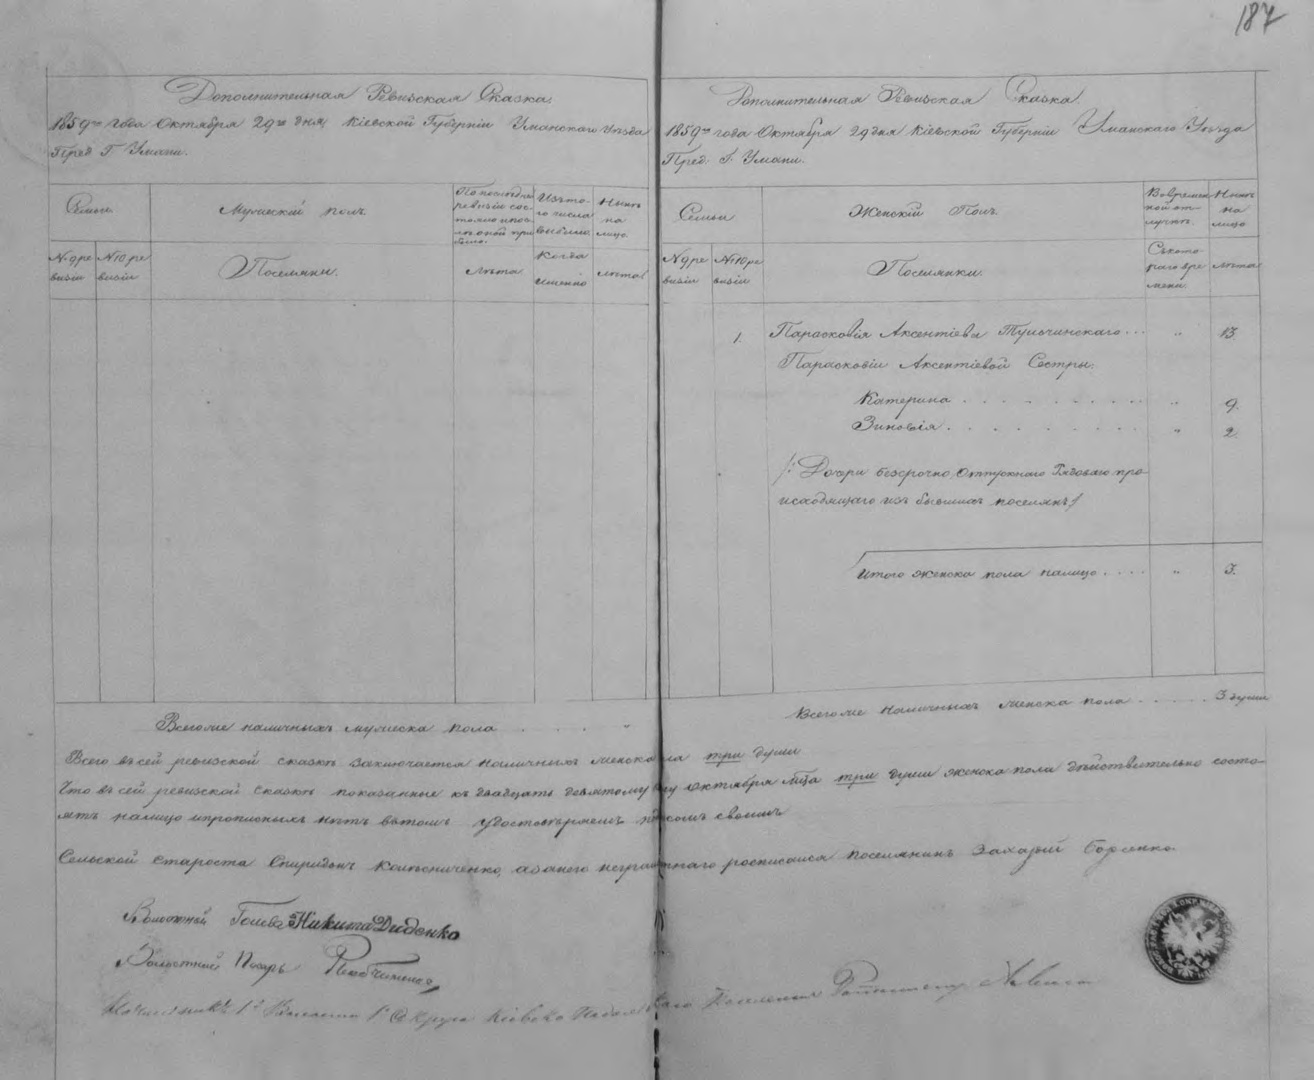 187
Дополнительная Ревизская Сказка.
1859го года Октября 29го дня, Кіевской Губерніи Уманскаго Уѣзда
Пред. Г. Умани.
Семьи
Мужескій полъ.
По послѣдней ревизіи сос-
тояло и пос-
лѣ оной при
было.
Изъ то-
го числа
выбыло.
Нынѣ
на
лицо
№ 9 ре
визіи
№ 10 ре
визіи
Поселяне.
лѣта
Когда
именно
лѣта
Дополнительная Ревизская Сказка.
1859го года Октября 29 дня Кіевской Губерніи Уманскаго Уѣзда
Пред. Г. Умани.
Семьи
Женскій Полъ.
Во времен
ной от-
лучкѣ
Нынѣ
на
лицо
№ 9 ре
визіи
№ 10 ре
визіи
Поселянки.
Съ кото-
раго вре
мени
лѣта
1. Парасковія Аксентіева Тульчинскаго . . . „ 13.
Парасковіи Аксентіевой Сестры:
Катерина . . . . . . . . . . „ 9.
Зиновія . . . . . . . . . . „ 2.
/: Дочери безсрочно Отпускнаго Рядоваго про-
исходящаго изъ бывшихъ поселянъ/
Итого женска пола налицо . . . . „ 3.
Всего же наличныхъ мужеска пола . . . . . „
Всего же наличныхъ женска пола . . . . . 3 души
Всего въ сей ревизской сказкѣ заключается наличныхъ женска пола три души
Что въ сей ревизской сказкѣ показанные къ двадцать девятому числу октября м͠ца три души женска пола дѣйствительно состо-
ятъ налицо и прописныхъ нѣтъ въ томъ удостовѣряемъ подписомъ своимъ
Сельской Староста Спиридонъ а за него неграмотнаго росписался поселянинъ Захарій Борсенко
Волостной Голова Никита Диденко
Волостной Писарь
Начальникъ 1й Волости 1го Округа Кіевско Подольскаго Поселенія Ротмистръ